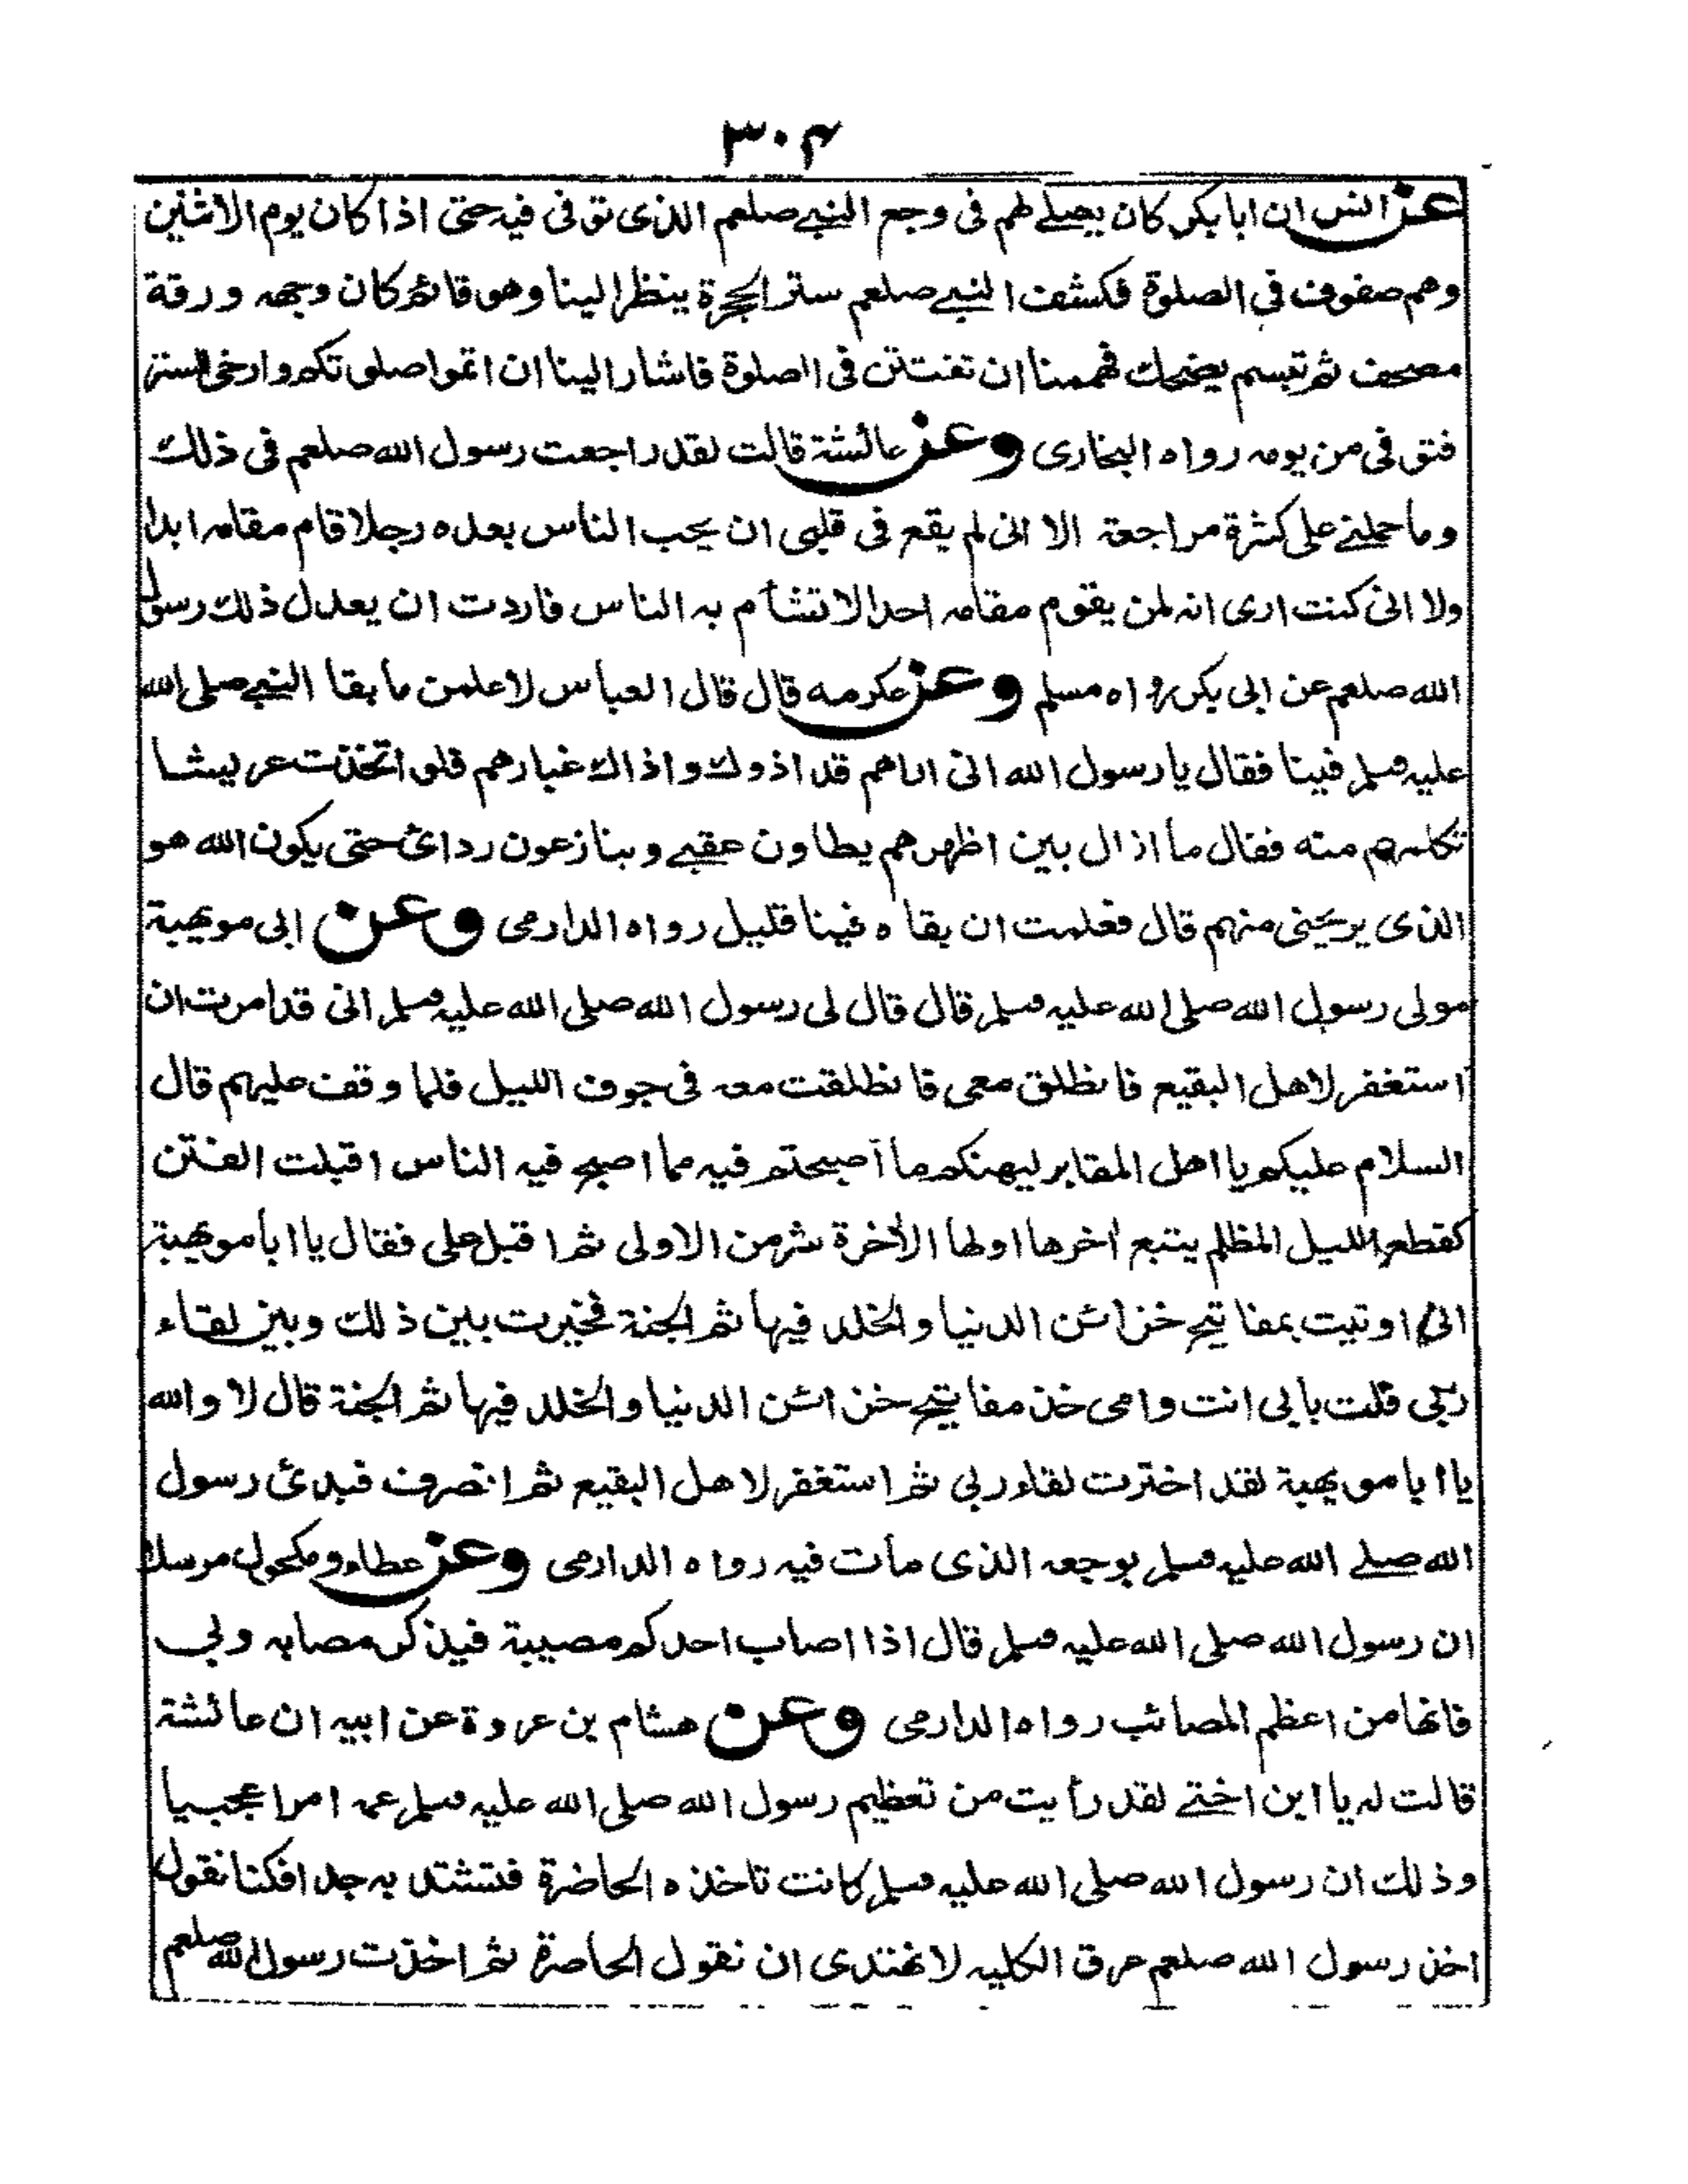 ۳۰۴
عن انس ان ابا بكر كان يصلے لهم فی وجع النبے صلعم الذی توفی فيه حتی اذا كان يوم الاثنين
وهم صفوف فی الصلوة فكشف النبے صلعم ستر الحجرة ينظر الينا وهو قائم كان وجهه ورقة
مصحف ثم تبسم يضحك فهممنا ان تفتتن فی الصلوة فاشار الينا ان اتموا صلوتكم وارخی الستر
فتوفی من يومه رواه البخاری وعن عائشة قالت لقد راجعت رسول الله صلعم فی ذلك
وما حملنے علی كثرة مراجعة الا انی لم يقع فی قلبی ان يحب الناس بعده رجلا قام مقامه ابدا
ولا انی كنت اری انه لمن يقوم مقامه احد الا تتشأم به الناس فاردت ان يعدل ذلك رسول
الله صلعم عن ابی بكر رواه مسلم وعن عكرمه قال قال العباس لاعلمن ما بقا النبے صلی الله
عليه وسلم فينا فقال يا رسول الله انی اراهم قد اذوك واذاك غبارهم فلو اتخذت عريشا
تكلمهم منه فقال ما ازال بين اظهرهم يطاون عقبے وينازعون ردائ حتی يكون الله هو
الذی يريحنی منهم قال فعلمت ان بقاه فينا قليل رواه الدارمی وعن ابی مويهبة
مولی رسول الله صلی الله عليه وسلم قال قال لی رسول الله صلی الله عليه وسلم انی قد امرت ان
استغفر لاهل البقيع فانطلق معی فانطلقت معه فی جوف الليل فلما وقف عليهم قال
السلام عليكم يا اهل المقابر ليهنكم ما أصبحتم فيه مما اصبح فيه الناس اقبلت الفتن
كقطع الليل المظلم يتبع أخرها اولها الأخرة شر من الاولی ثم اقبل علی فقال يا ابا مويهبة
انی اوتيت بمفاتيح خزائن الدنيا والخلد فيها ثم الجنة فخيرت بين ذلك وبين لقاء
ربی قلت بابی انت وامی خذ مفاتيح خزائن الدنيا والخلد فيها ثم الجنة قال لا والله
يا ابا مويهبة لقد اخترت لقاء ربی ثم استغفر لاهل البقيع ثم انصرف فبدئ رسول
الله صلے الله عليه وسلم بوجعه الذی مات فيه رواه الدارمی وعن عطاء ومكحول مرسلا
ان رسول الله صلی الله عليه وسلم قال اذا اصاب احدكم مصيبة فيذكر مصابه و بی
فانها من اعظم المصائب رواه الدارمی وعن هشام بن عروة عن ابيه ان عائشة
قالت له يا ابن اختے لقد رأيت من تعظيم رسول الله صلی الله عليه وسلم عمه امرا عجيبا
وذلك ان رسول الله صلی الله عليه وسلم كانت تاخذه الحاضرة فتشتد به جدا فكنا نقول
اخذ رسول الله صلعم عرق الكليه لا نهتدی ان نقول الحاصرة ثم اخذت رسول الله صلعم